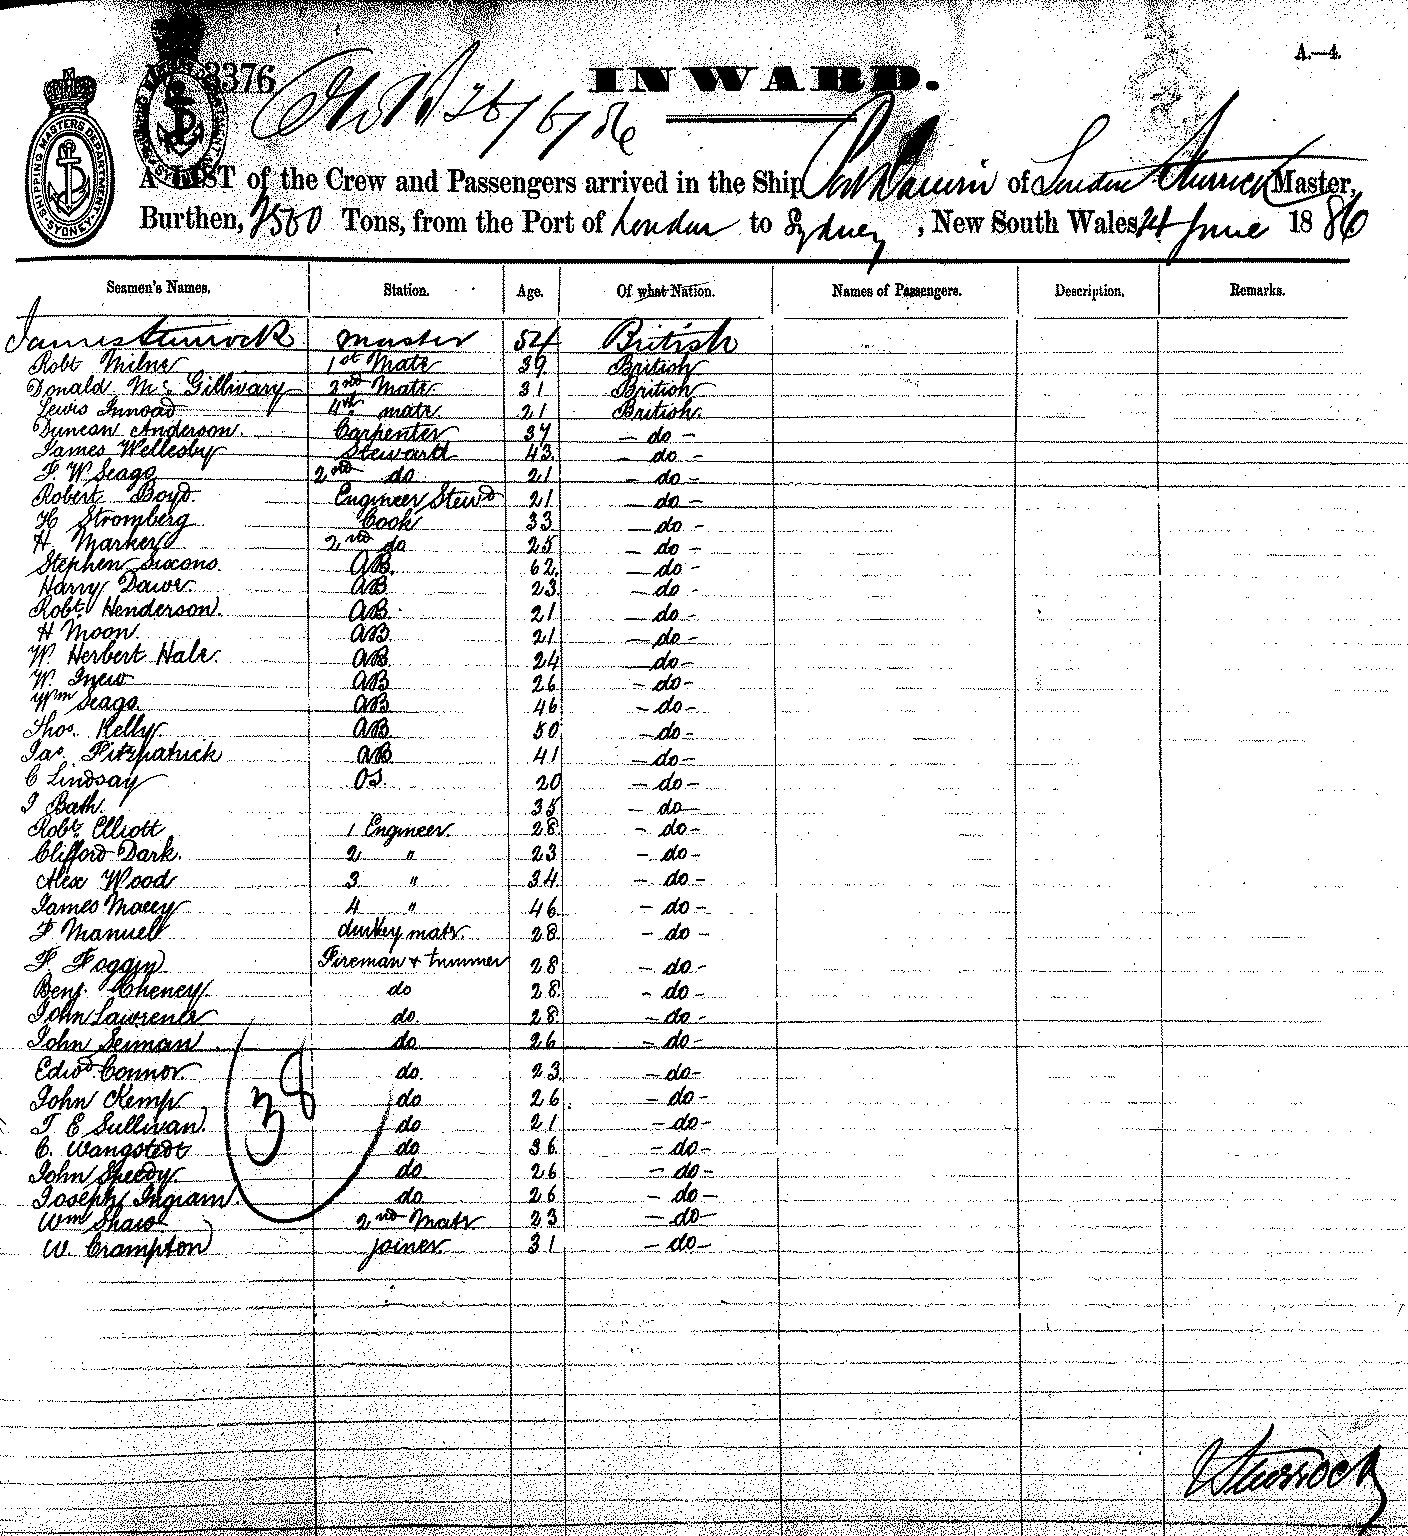 A.—4.
3376
26/6/86
INWARD.
SHIPPING MASTERS DEPARTMENT SYDNEY
A LIST of the Crew and Passengers arrived in the Ship Port Darwin of London Sturrock Master,
Burthen, 2580 Tons, from the Port of London to Sydney, New South Wales 24 June 1886
Seamen's Names. Station. Age. Of what Nation. Names of Passengers. Description. Remarks.
James Sturrock Master 54 British
Robt Milne 1st Mate 39 British
Donald Mc Gillivary 2nd Mate 31 British
Lewis 4th mate 21 British
Duncan Anderson. Carpenter 37 – do –
James Wellesby Steward 43 – do –
F. W Seago 2nd do 21 – do –
Robert Boyd Engineer Stewd 21 – do –
H Stromberg Cook 33 – do –
H Marker 2nd do 25 – do –
Stephen Sixons. AB. 62. – do –
Harry Dawe. AB 23 – do –
Robt Henderson. AB. 21 – do –
H Moon. AB. 21 – do –
W. Herbert Hale. AB 24 – do –
W. Inew AB 26 – do –
Wm Seago AB 46 – do –
Thos. Kelly AB. 50 – do –
Jas. Fitzpatrick AB 41 – do –
C Lindsay OS. 20 – do –
J Bath. 35 – do –
Robt Elliott 1 Engineer. 28 – do –
Clifford Dark. 2 " 23 – do –
Alex Wood 3 " 34 – do –
James Macey 4 " 46 – do –
F Manuel dunkey mate. 28 – do –
F. Foggin Fireman & trimmer 28 – do –
Benj. Cheney. do 28 – do –
John Lawrence do. 28 – do –
John Seiman do 26 – do –
Edwd. Connor. do. 23 – do –
John Kemp do 26 – do –
T E Sullivan. do 21 – do –
C. Wangstedt do 36 – do –
John Speedy. do. 26 – do –
Joseph Ingram. do 26 – do –
Wm Shaw 2nd Mate 23 – do –
W. Crampton joiner. 31 – do –
38
J Sturrock